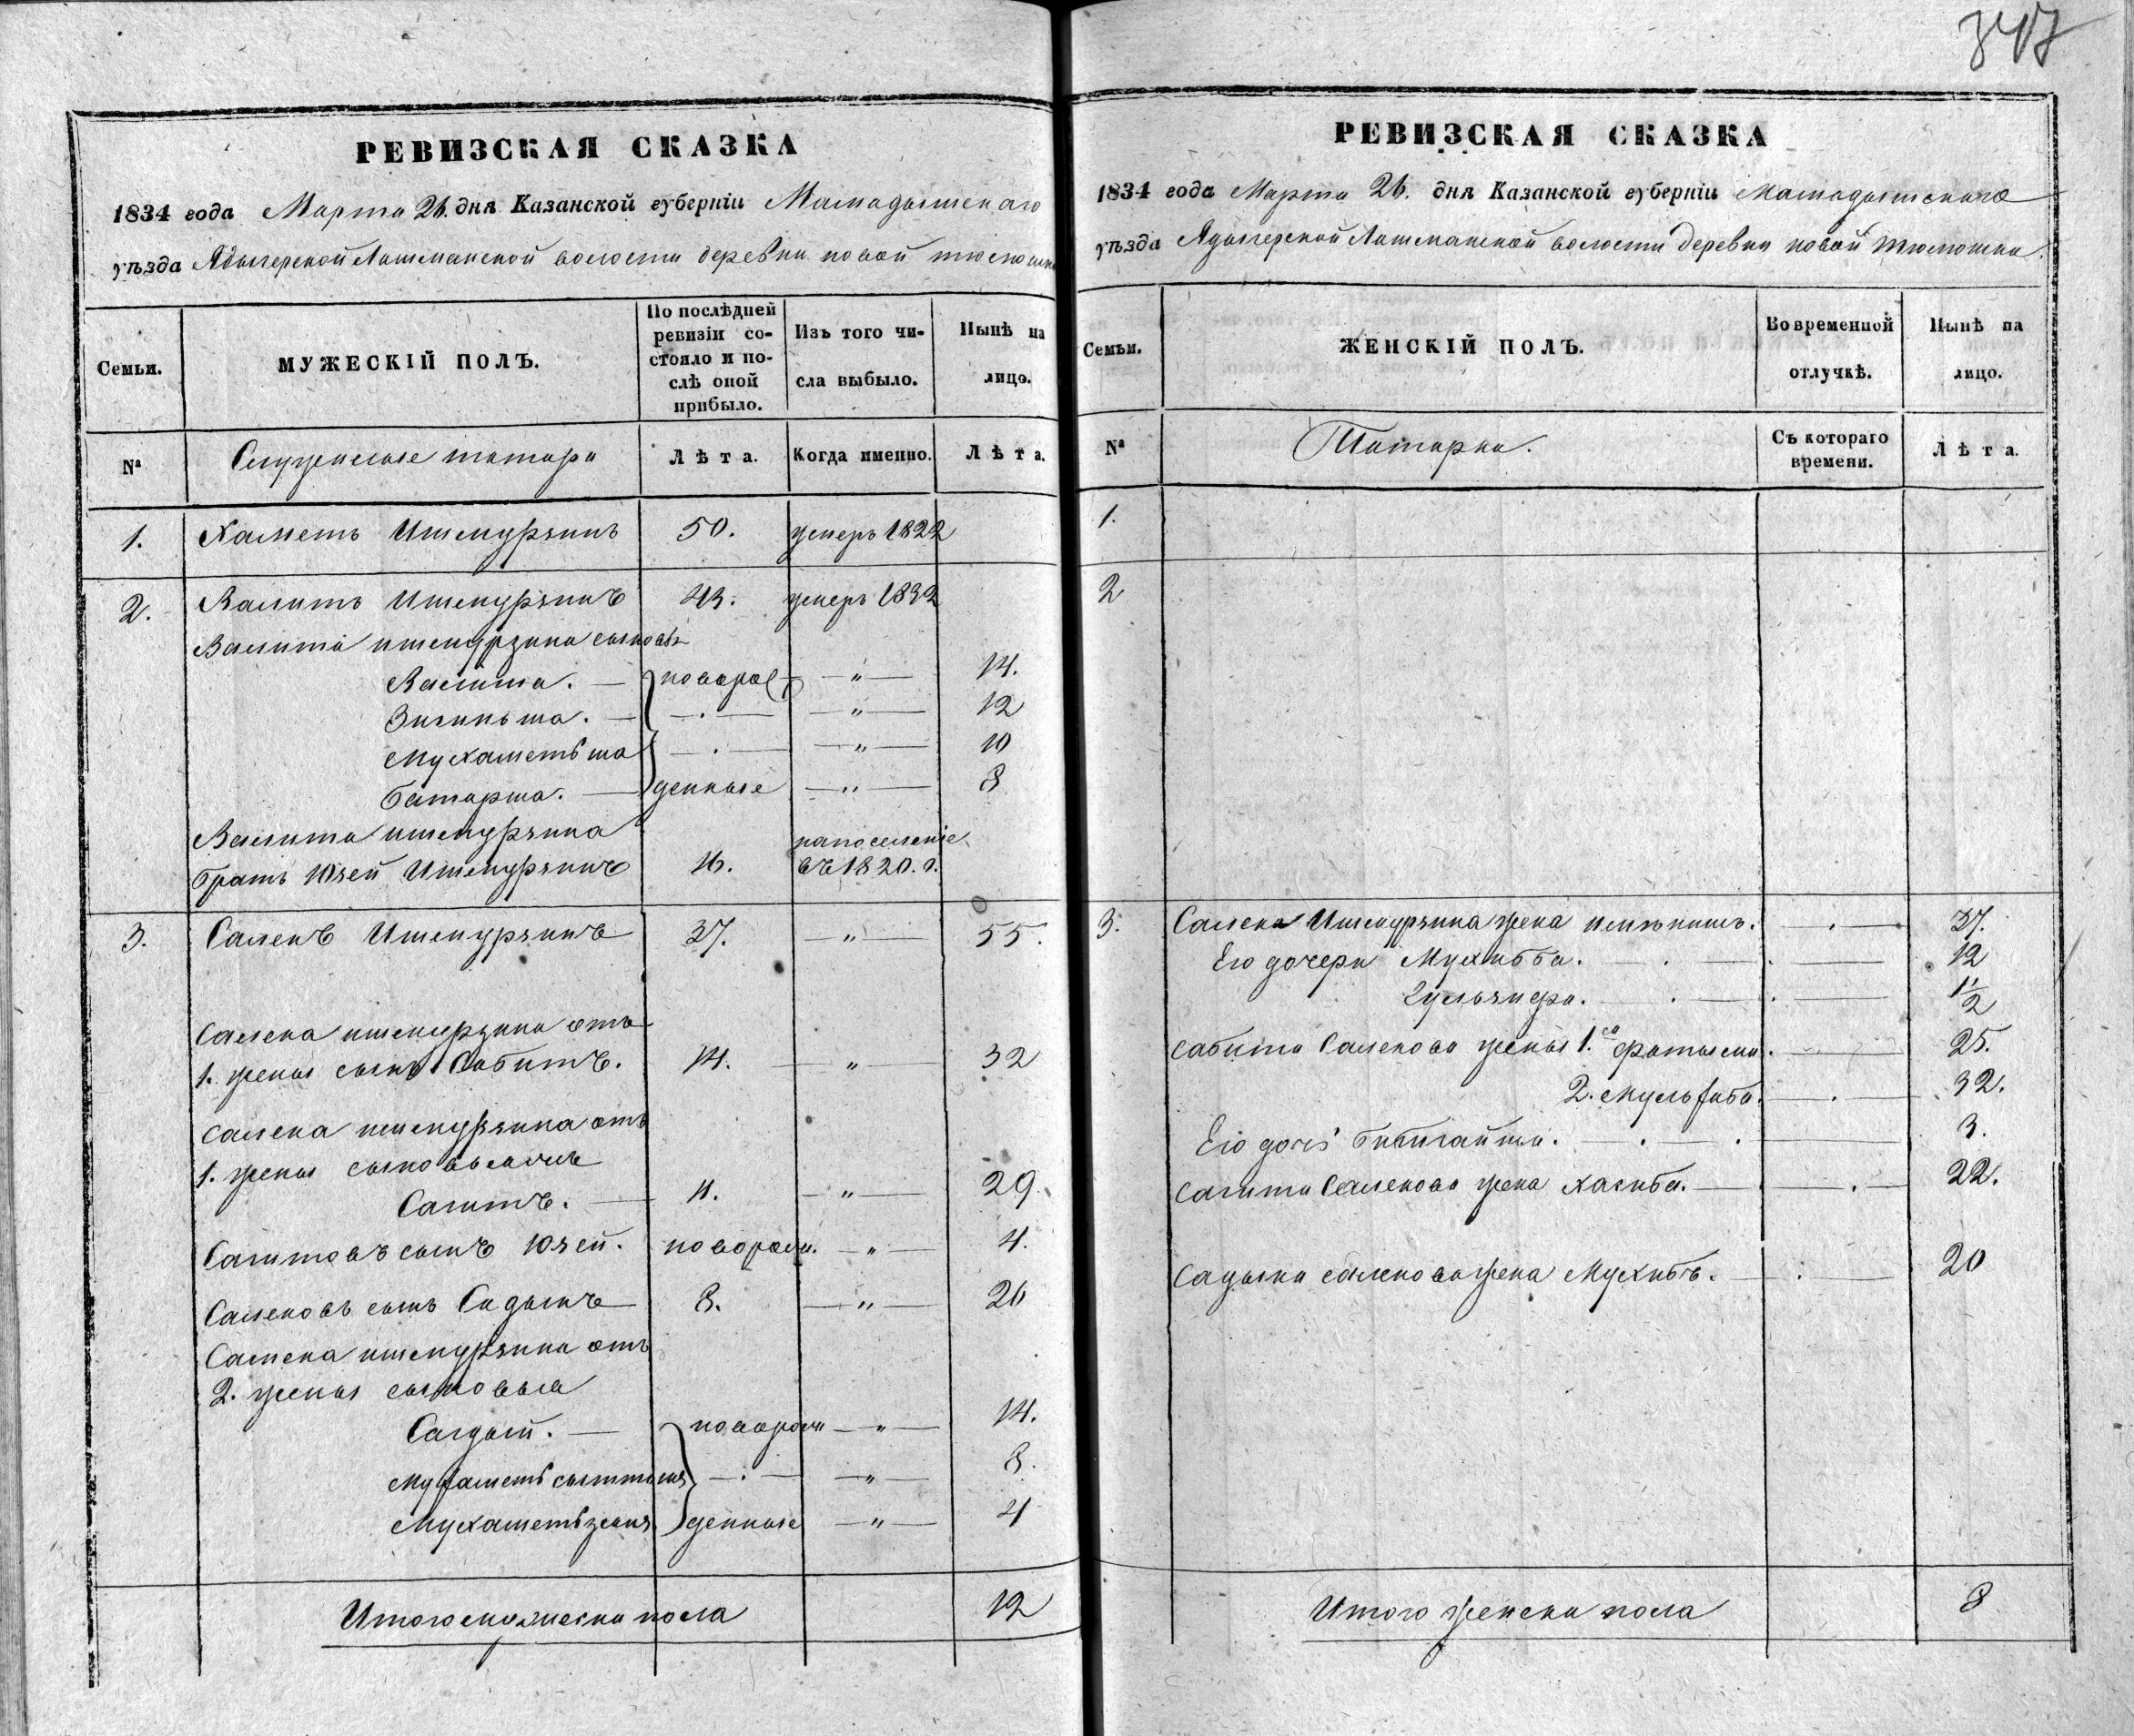 347
РЕВИЗСКАЯ СКАЗКА
1834 года Марта 26. дня Казанской губерніи Мамадышскаго
уѣзда Лашманской волости деревни новой
Семьи.
МУЖЕСКІЙ ПОЛЪ.
По послѣдней ревизіи со-
стояло и по-
слѣ оной
прибыло.
Изъ того чи-
сла выбыло.
Нынѣ на
лицо.
№
Служилые татара
Лѣта.
Когда именно.
Лѣта.
1. Хаметь Ишмурзинъ 50. умеръ 1822
2. Валитъ Ишмурзинъ 43. умеръ 1832
Валита ишмурзина сыновья
Валиша. — новорож — " — 14.
Зиганьша. — — . — — " — 12
Мухаметьша — . — — " — 10
Батырша. — денные — " — 8
Валита ишмурзина
братъ Юзей Ишмурзинъ 16. на поселеніе въ 1820. г.
3. Салекъ Ишмурзинъ 37. — " — 55.
Салека ишмурзина отъ
1. жены сынъ Сабитъ. 14. — " — 32
Салека ишмурзина отъ
1. жены сыновья
Сагитъ. — 11. — " — 29.
Сагитовъ сынъ Юзей. новорож. — " — 4.
Салековъ сынъ Садыкъ 8. — " — 26
Салека ишмурзина отъ
2. жены сыновья
Сагдый. — новорож — " — 14.
— . — — " — 8.
Мухаметьзянъ денные — " — 4
Итого мужеска пола 12
РЕВИЗСКАЯ СКАЗКА
1834 года Марта 26. дня Казанской губерніи Мамадышскаго
уѣзда Лашманской волости деревни новой
Семьи.
ЖЕНСКІЙ ПОЛЪ.
Во временной
отлучкѣ.
Нынѣ на
лицо.
№
Татарки.
Съ котораго
времени.
Лѣта.
1.
2
3. Салека Ишмурзина жена — . — 37.
Его дочери Мухибба. — . — 12
— . — 1 1/2
Сабита Салекова жены 1.ая — 25.
2. — . — 32.
Его дочь — . — 3.
Сагита Салекова жена Хагиба. — . — 22.
Садыка Салекова жена Мухибъ. — . — 20
Итого женска пола 8